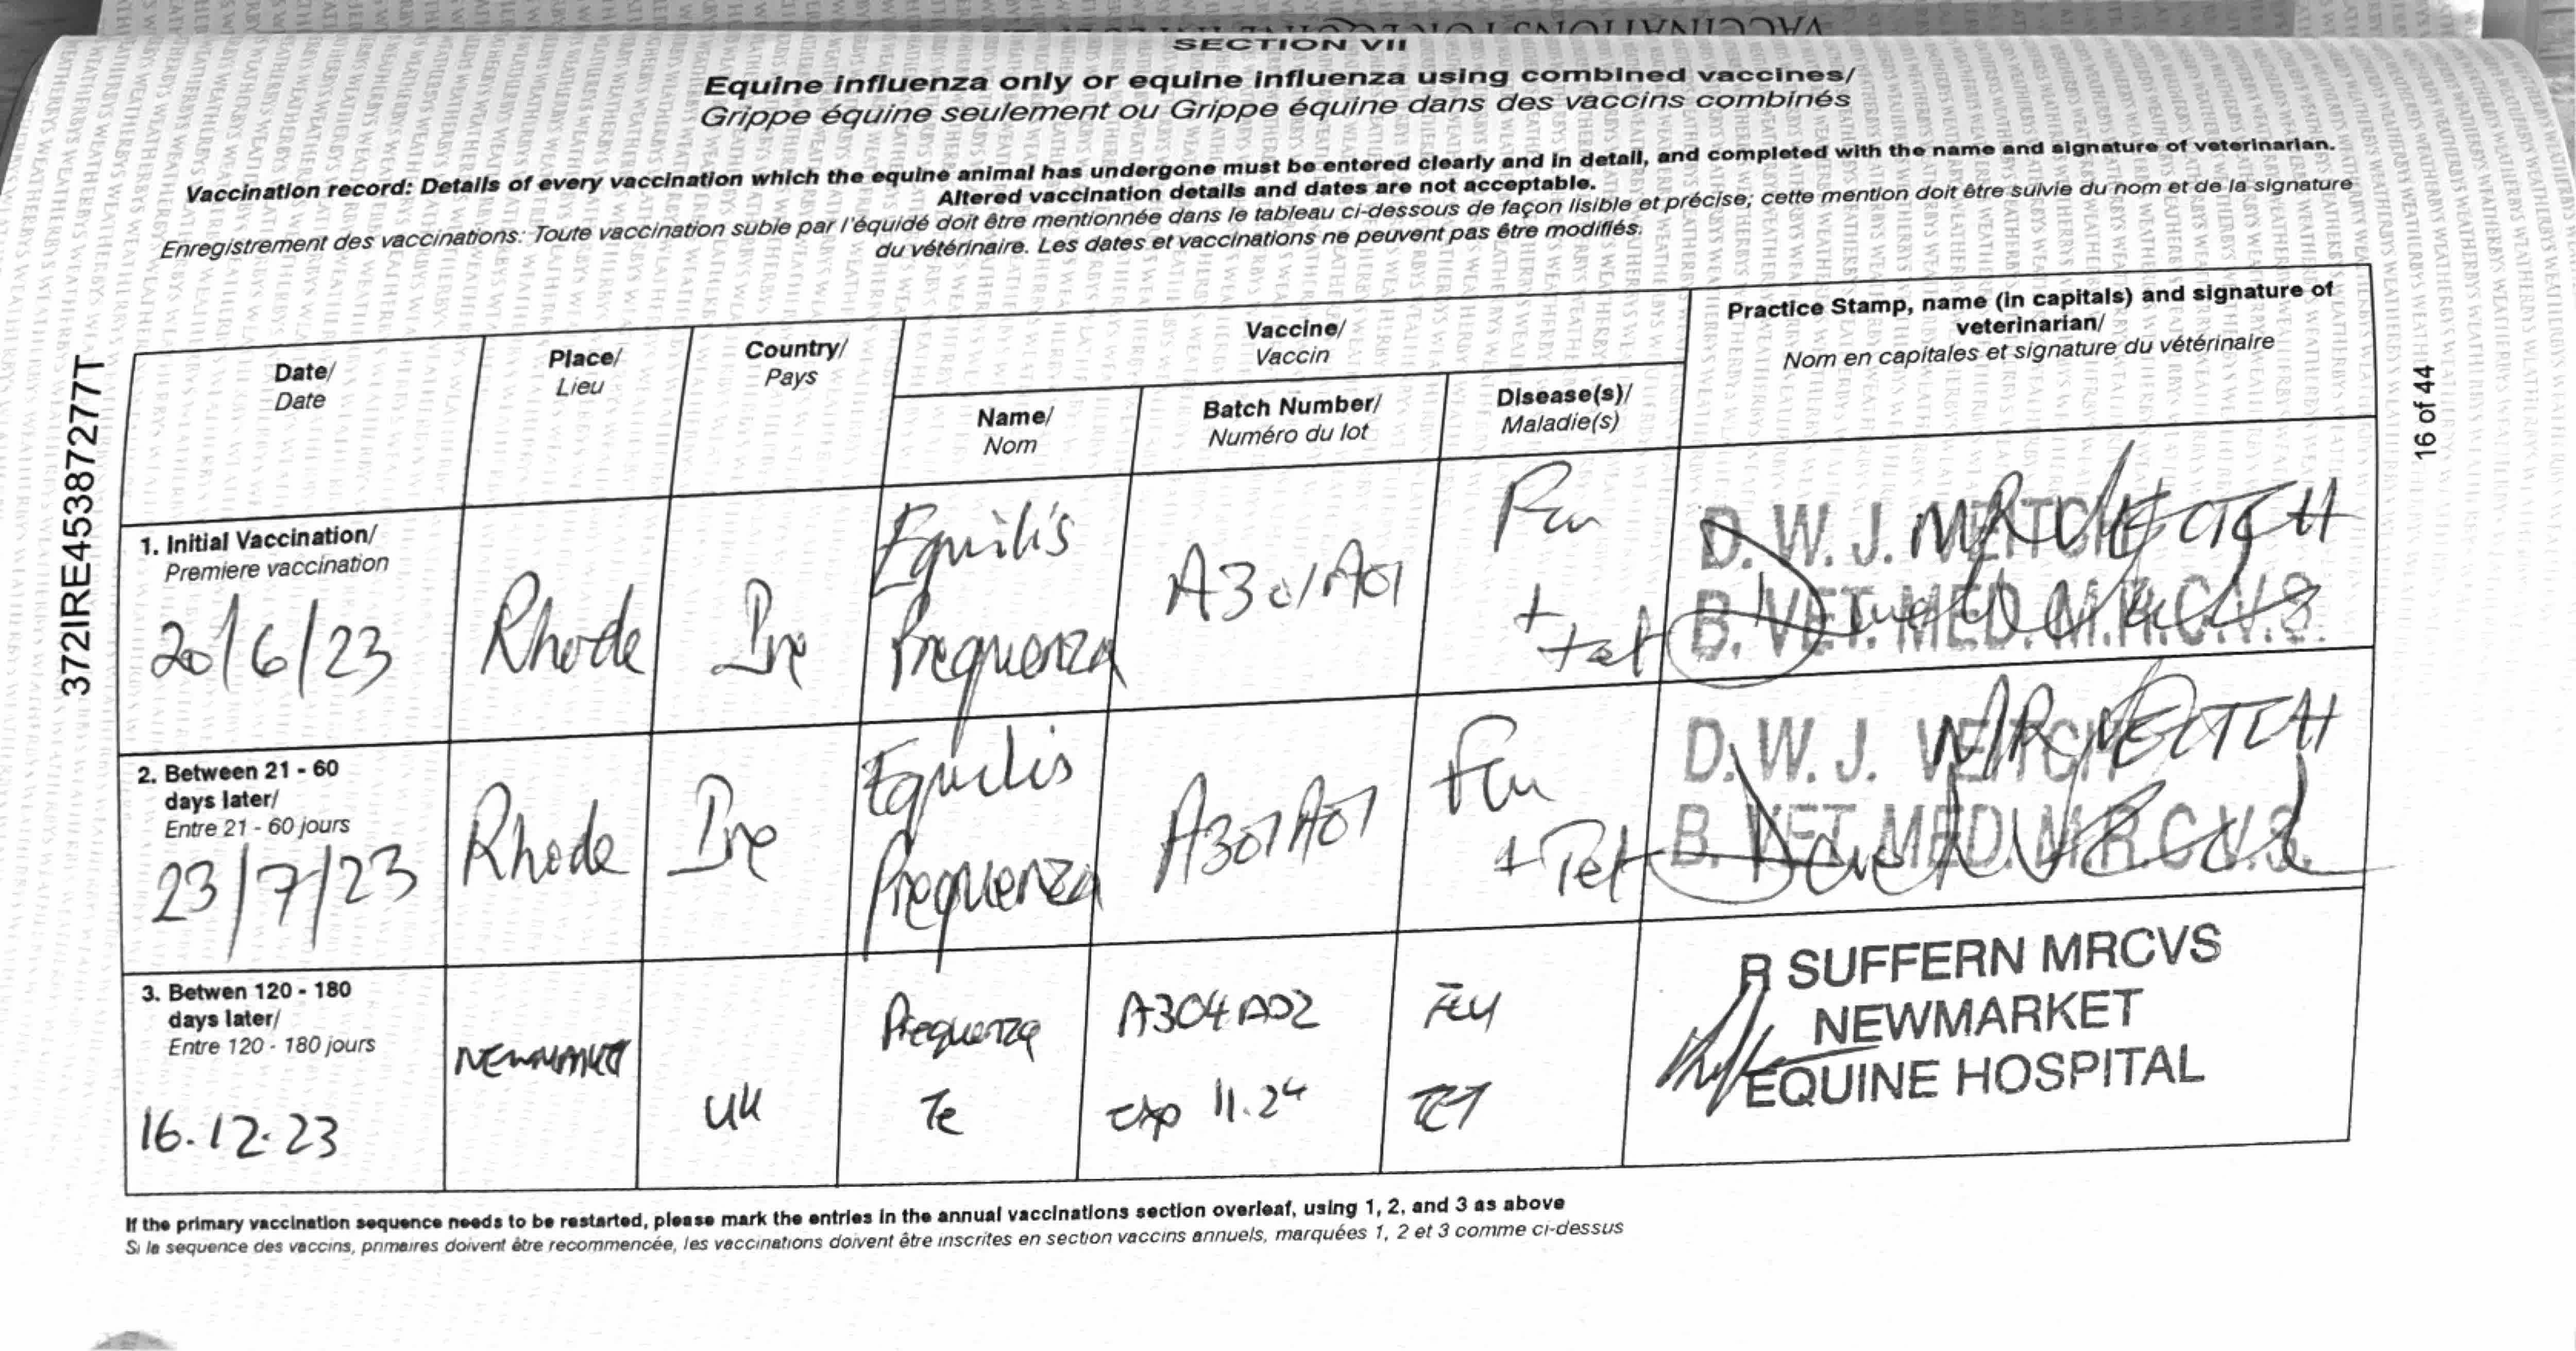 SECTION VII
Equine influenza only or equine influenza using combined vaccines/
Grippe équine seulement ou Grippe équine dans des vaccins combinés
Vaccination record: Details of every vaccination which the equine animal has undergone must be entered clearly and in detail, and completed with the name and signature of veterinarian.
Altered vaccination details and dates are not acceptable.
Enregistrement des vaccinations: Toute vaccination subie par l'équidé doit être mentionnée dans le tableau ci-dessous de façon lisible et précise; cette mention doit être suivie du nom et de la signature
du vétérinaire. Les dates et vaccinations ne peuvent pas être modifiés.
372IRE45387277T
16 of 44
Date/
Date
Place/
Lieu
Country/
Pays
Vaccine/
Vaccin
Name/
Nom
Batch Number/
Numéro du lot
Disease(s)/
Maladie(s)
Practice Stamp, name (in capitals) and signature of
veterinarian/
Nom en capitales et signature du vétérinaire
1. Initial Vaccination/
Premiere vaccination
20/6/23
Rhode
Ire
Equilis
Prequenza
A301A01
Flu
+
tet
D. W. J. VEITCH
MR VEITCH
B. VET. MED. M.R.C.V.S.
2. Between 21 - 60
days later/
Entre 21 - 60 jours
23/7/23
Rhode
Ire
Equilis
Prequenza
A301A01
Flu
+ Tet
D. W. J. VEITCH
MR VEITCH
B. VET. MED. M.R.C.V.S.
3. Betwen 120 - 180
days later/
Entre 120 - 180 jours
16.12.23
NEWMARKET
UK
Prequenza
Te
A304A02
exp 11.24
FLU
TET
R SUFFERN MRCVS
NEWMARKET
EQUINE HOSPITAL
If the primary vaccination sequence needs to be restarted, please mark the entries in the annual vaccinations section overleaf, using 1, 2, and 3 as above
Si la sequence des vaccins, primaires doivent être recommencée, les vaccinations doivent être inscrites en section vaccins annuels, marquées 1, 2 et 3 comme ci-dessus